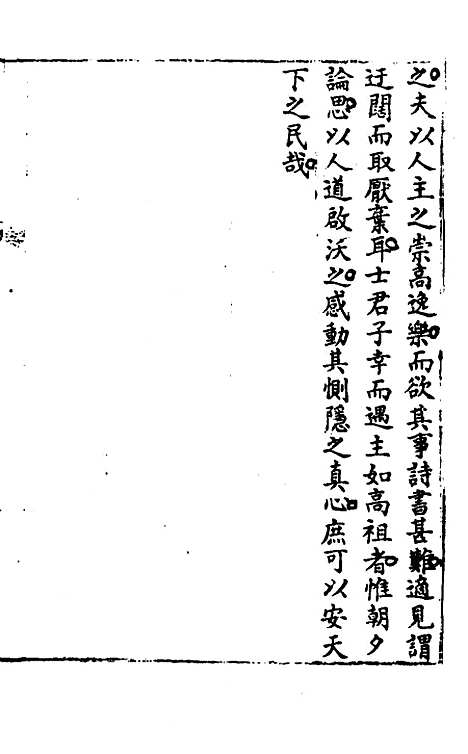 之夫以人主之崇高逸樂而欲其事詩書甚難適見謂
迂闊而取厭棄耳士君子幸而遇主如高祖者惟朝夕
論思以人道啟沃之感動其惻隱之真心庶可以安天
下之民哉